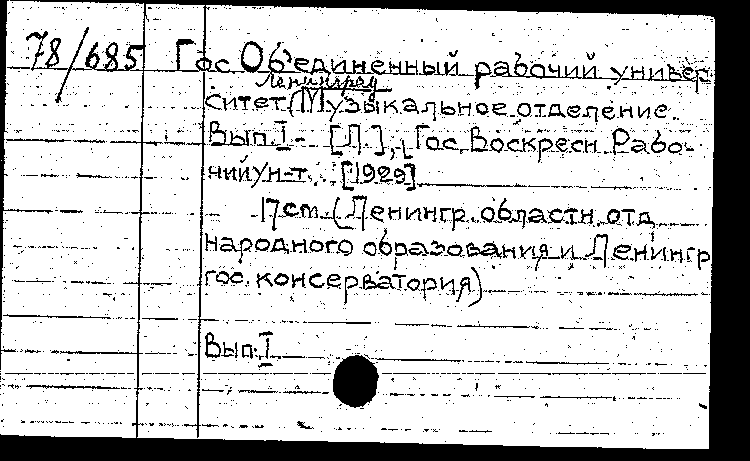 78/685 Гос Объединенный рабочий универ
Ленинград
ситет (Музыкальное отделение.
Вып. I - [Л.], Гос. Воскресн. Рабо-
чий ун-т. [1929]
17 cm. (Ленингр. областн. отд.
народного образования и Ленингр
гос. консерватория)
Вып. I